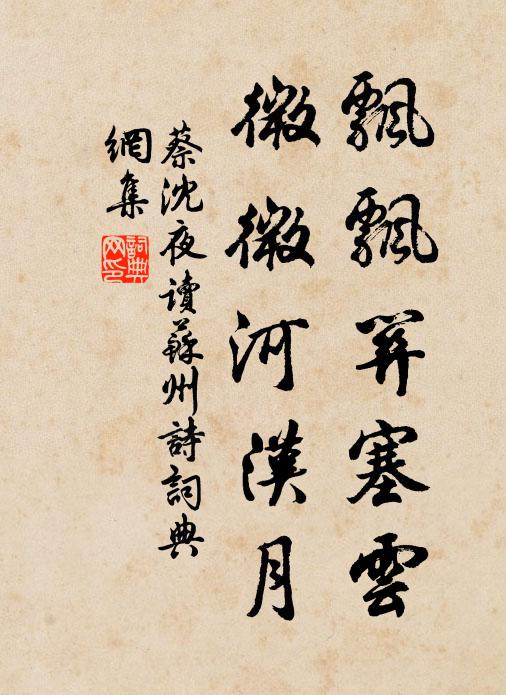 飄飄關塞雲
微微河漢月
蔡沈夜讀蘇州詩詞典
網集
詞典
网印